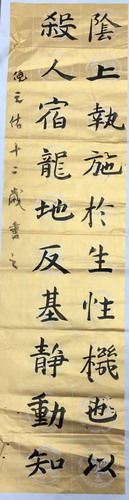 陰上執施於生性機也以
殺人宿龍地反基靜動知
倪立佑十二歲書之